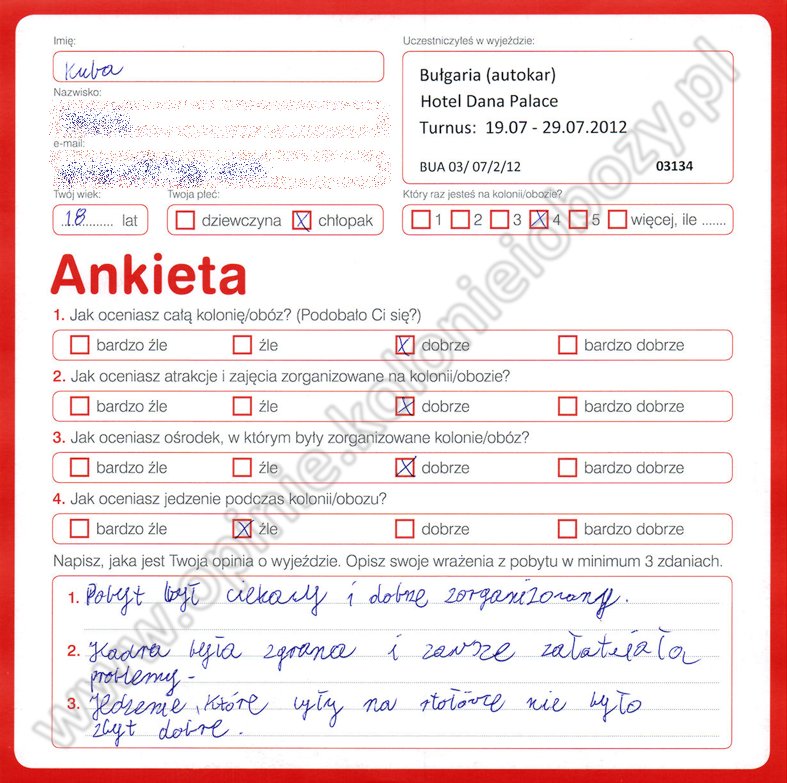 Imię:
Kuba
Uczestniczyłeś w wyjeździe:
Bułgaria (autokar)
Hotel Dana Palace
Turnus: 19.07 - 29.07.2012
BUA 03/ 07/2/12 03134
Nazwisko:
e-mail:
Twój wiek:
18 lat
Twoja płeć:
dziewczyna X chłopak
Który raz jesteś na kolonii/obozie?
1 2 3 X 4 5 więcej, ile .......
Ankieta
1. Jak oceniasz całą kolonię/obóz? (Podobało Ci się?)
bardzo źle źle X dobrze bardzo dobrze
2. Jak oceniasz atrakcje i zajęcia zorganizowane na kolonii/obozie?
bardzo źle źle X dobrze bardzo dobrze
3. Jak oceniasz ośrodek, w którym były zorganizowane kolonie/obóz?
bardzo źle źle X dobrze bardzo dobrze
4. Jak oceniasz jedzenie podczas kolonii/obozu?
bardzo źle X źle dobrze bardzo dobrze
Napisz, jaka jest Twoja opinia o wyjeździe. Opisz swoje wrażenia z pobytu w minimum 3 zdaniach.
1. Pobyt był ciekawy i dobrze zorganizowany.
2. Kadra była zgrana i zawsze załatwiała
problemy -
3. Jedzenie, które były na stołówce nie było
zbyt dobre.
www.opinie.kolonieiobozy.pl